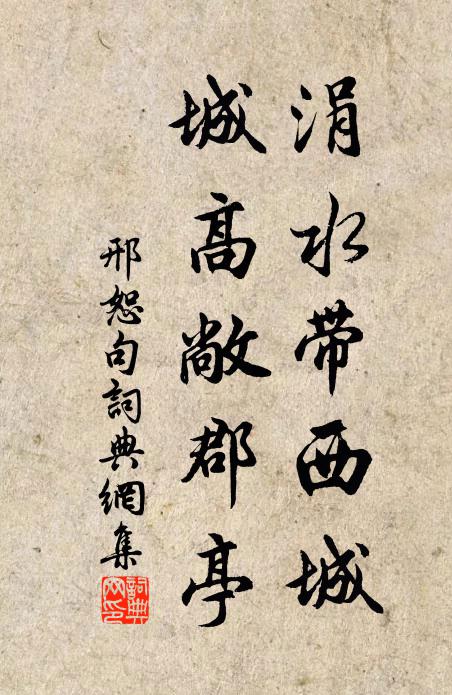 涓水带西城
城高敞郡亭
邢恕句詞典網集
詞典網印